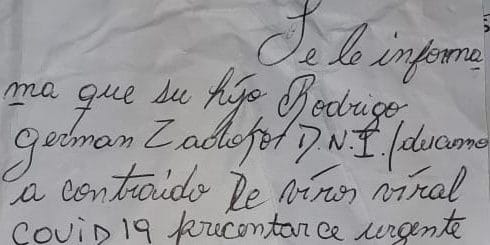 Se le informa
ma que su hijo Rodrigo
german D.N.I.
a contraido De viros viral
COVID 19 precentarce urgente